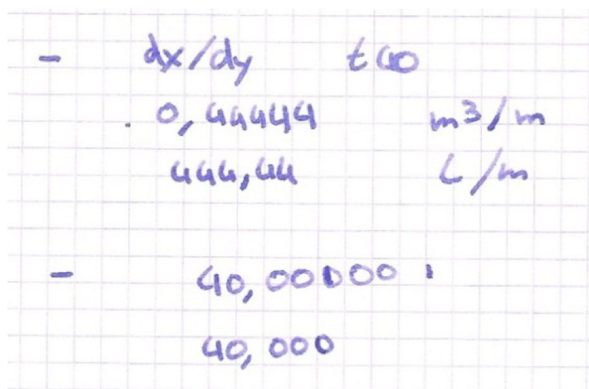 - dx/dy t40
. 0,44444 m³/m
444,44 L/m
- 40,00000
40,000